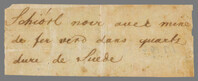 Schiost noir avec mine
de fer verd dans quartz
dure de Suede